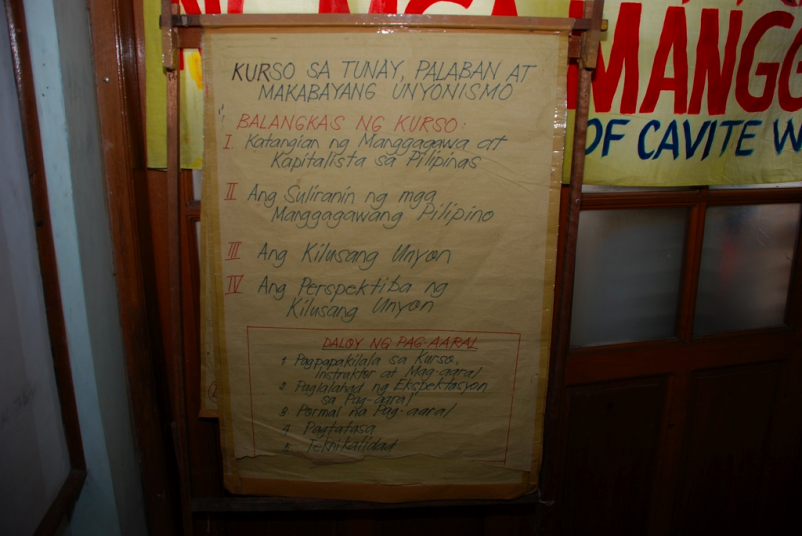 NG MGA MANGG
OF CAVITE W
KURSO SA TUNAY, PALABAN AT
MAKABAYANG UNYONISMO
BALANGKAS NG KURSO:
I. Katangian ng Manggagawa at
Kapitalista sa Pilipinas
II Ang Suliranin ng mga
Manggagawang Pilipino
III Ang Kilusang Unyon
IV Ang Perspektiba ng
Kilusang Unyon
DALOY NG PAG-AARAL
1 Pagpapakilala sa Kurso,
Instruktor at Mag-aaral
2 Paglalahad ng Ekspektasyon
sa Pag-aaral
3 Pormal na Pag-aaral
4 Pagtatasa
5. Teknikalidad